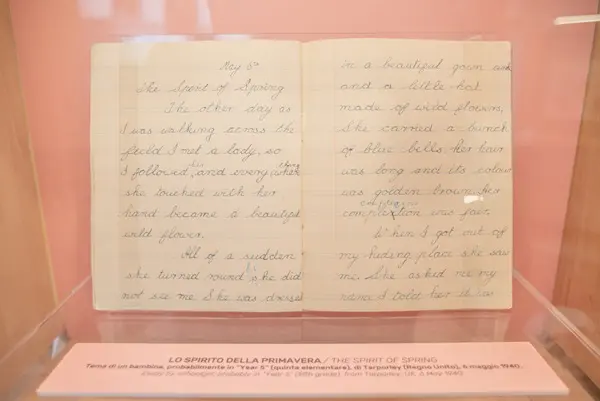 May 6th
The Spirit of Spring
The other day as
I was walking across the
field I met a lady, so
I followed her, and everything
she touched with her
hand became a beautiful
wild flower.
All of a sudden
she turned round, she did
not see me. She was dressed
in a beautiful gown
and a little hat
made of wild flowers,
She carried a bunch
of blue bells. Her hair
was long and its colour
was golden brown, her
complexion was fair.
When I got out of
my hiding place she saw
me. She asked me my
name I told her it was
LO SPIRITO DELLA PRIMAVERA / THE SPIRIT OF SPRING
Tema di un bambino, probabilmente in "Year 5" (quinta elementare), di Tarporley (Regno Unito), 6 maggio 1940.
probably in "Year 5" (fifth grade), from Tarporley, UK, 6 May 1940